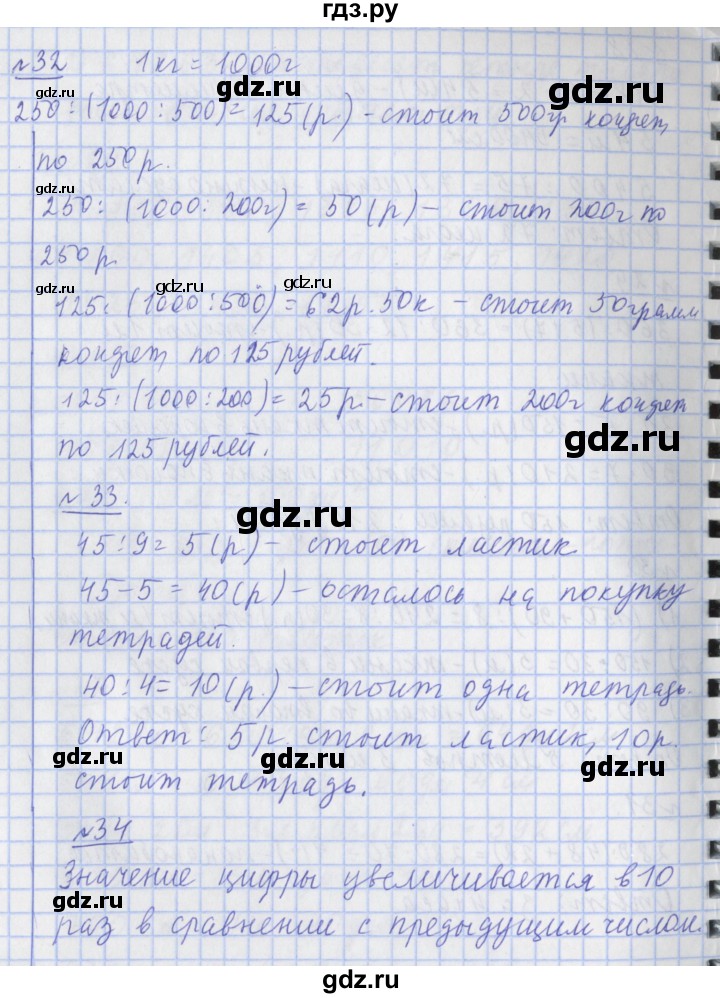 гдз.ру
№32 1кг = 1000г
gdz.ru gdz.ru gdz.ru
250 : (1000 : 500) = 125 (р.) - стоит 500гр конфет,
по 250 р.
gdz.ru
250 : (1000 : 200г) = 50 (р) - стоит 200г по
250 р.
gdz.ru gdz.ru gdz.ru
125 : (1000 : 500) = 62р. 50к - стоит 50грамм
конфет, по 125 рублей.
125 : (1000 : 200) = 25р. - стоит 200г конфет
gdz.ru
по 125 рублей.
№ 33.
gdz.ru
45 : 9 = 5 (р) - стоит ластик
45 - 5 = 40 (р) - осталось на покупку
тетрадей.
40 : 4 = 10 (р.) - стоит одна тетрадь.
Ответ: 5 р стоит ластик, 10 р.
gdz.ru gdz.ru gdz.ru
стоит тетрадь.
№34
Значение цифры увеличивается в 10
gdz.ru gdz.ru gdz.ru
раз в сравнении с предыдущим числом.
gdz.ru